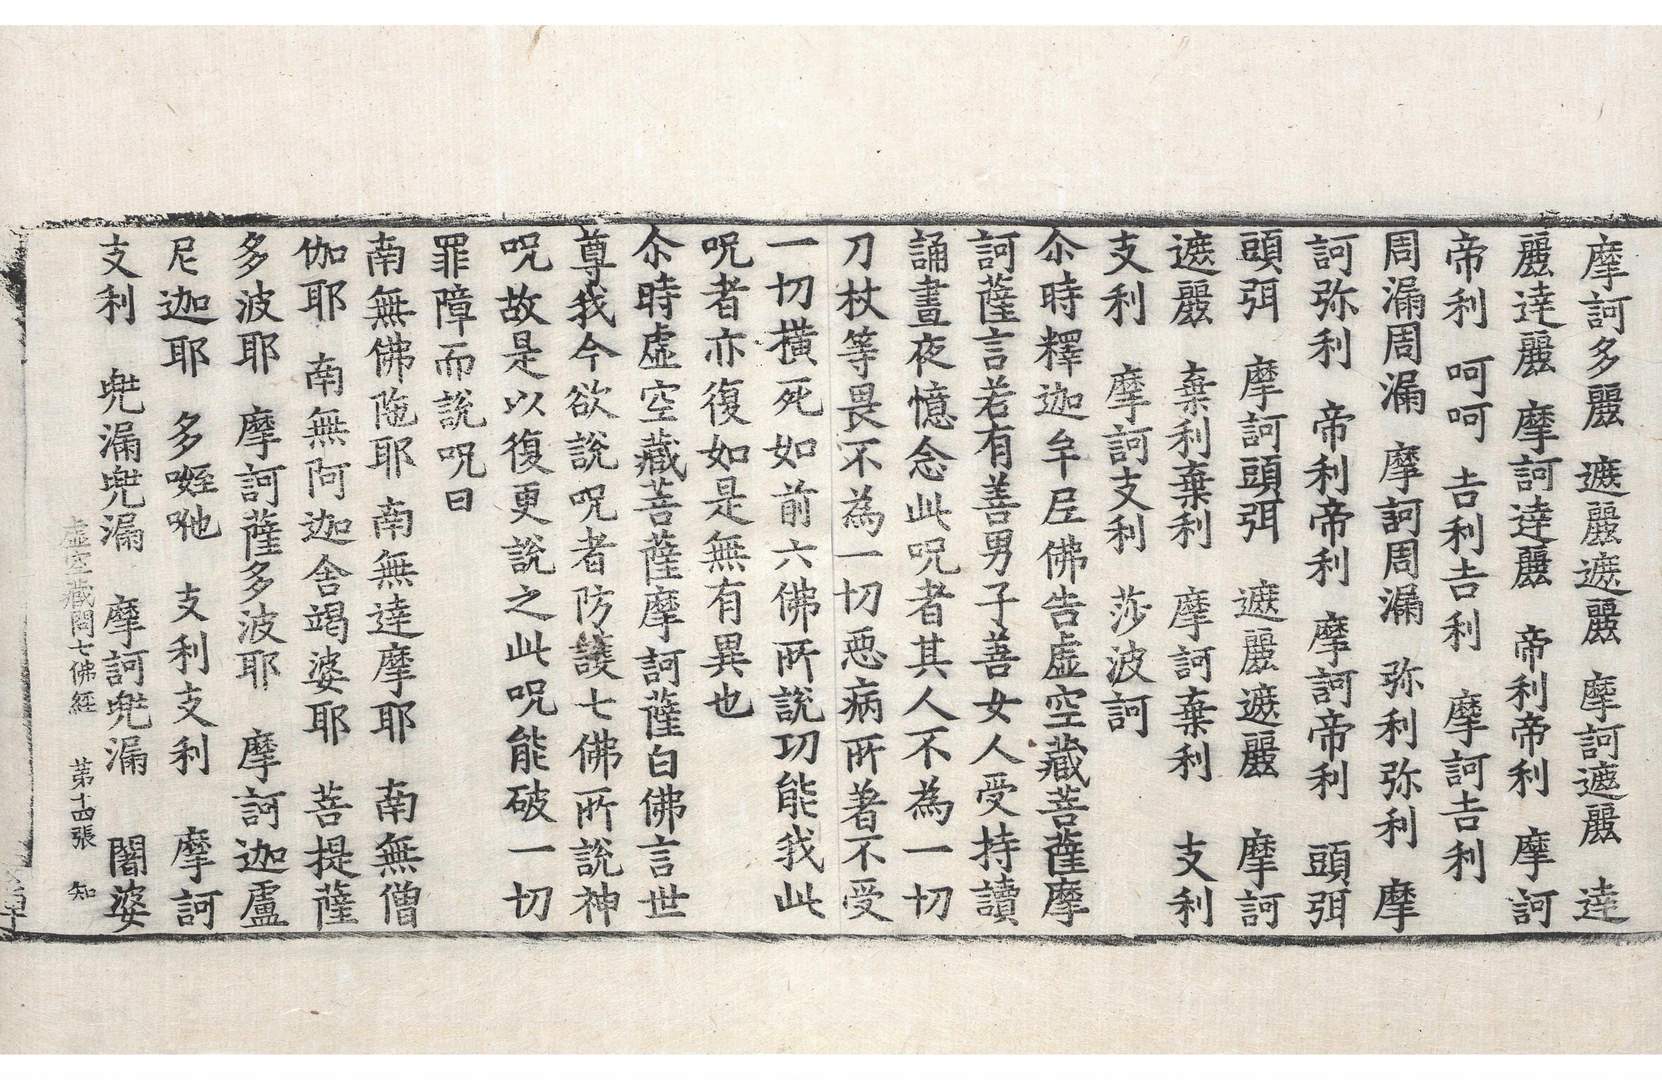 摩訶多麗 遮麗遮麗 摩訶遮麗 達
麗達麗 摩訶達麗 帝利帝利 摩訶
帝利 呵呵 吉利吉利 摩訶吉利
周漏周漏 摩訶周漏 弥利弥利 摩
訶弥利 帝利帝利 摩訶帝利 頭弭
頭弭 摩訶頭弭 遮麗遮麗 摩訶
遮麗 棄利棄利 摩訶棄利 支利
支利 摩訶支利 莎波訶
尒時釋迦牟尼佛告虛空藏菩薩摩
訶薩言若有善男子善女人受持讀
誦晝夜憶念此呪者其人不為一切
刀杖等畏不為一切惡病所著不受
一切橫死如前六佛所說功能我此
呪者亦復如是無有異也
尒時虛空藏菩薩摩訶薩白佛言世
尊我今欲說呪者防護七佛所說神
呪故是以復更說之此呪能破一切
罪障而說呪曰
南無佛陁耶 南無達摩耶 南無僧
伽耶 南無阿迦舍竭婆耶 菩提薩
多波耶 摩訶薩多波耶 摩訶迦盧
尼迦耶 多咥吔 支利支利 摩訶
支利 兜漏兜漏 摩訶兜漏 闍婆
虛空藏問七佛經 第十四張 知